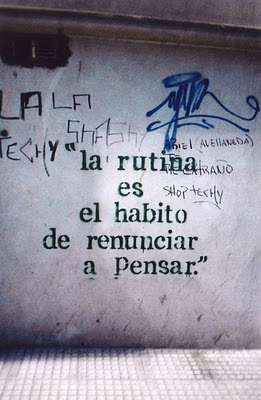 LA LA
TECHY
ARIEL (AVELLANEDA)
SHOP TECHY
"la rutina
es
el habito
de renunciar
a pensar."